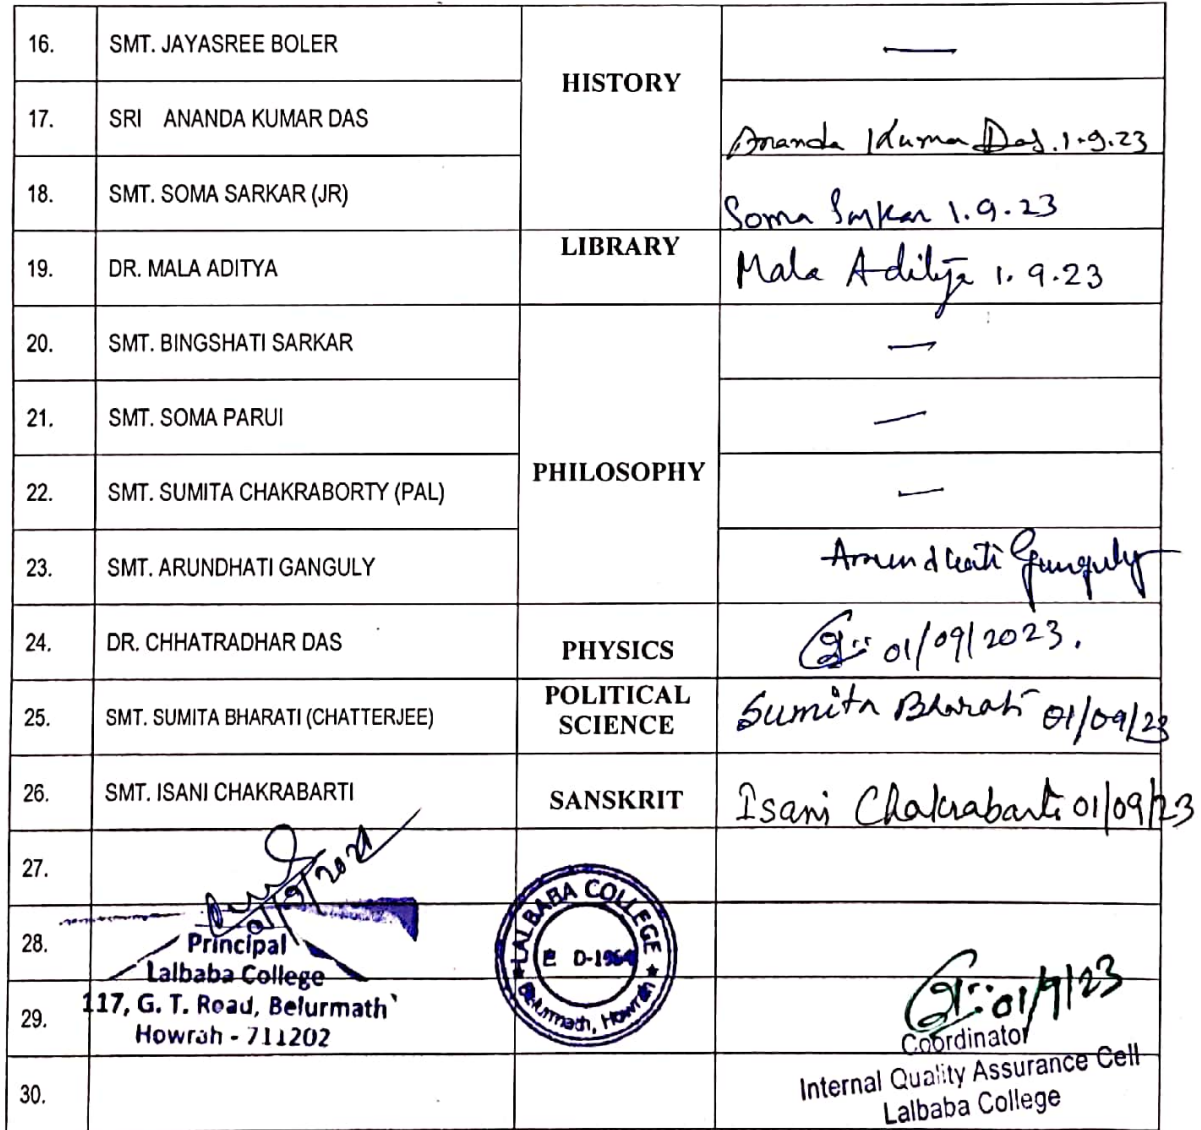 16. SMT. JAYASREE BOLER —
HISTORY
17. SRI ANANDA KUMAR DAS Ananda Kumar Das. 1.9.23
18. SMT. SOMA SARKAR (JR) Soma Sarkar 1.9.23
LIBRARY
19. DR. MALA ADITYA Mala Aditya 1.9.23
20. SMT. BINGSHATI SARKAR —
21. SMT. SOMA PARUI —
PHILOSOPHY
22. SMT. SUMITA CHAKRABORTY (PAL) —
23. SMT. ARUNDHATI GANGULY Arundhati Ganguly
24. DR. CHHATRADHAR DAS PHYSICS 01/09/2023.
POLITICAL
25. SMT. SUMITA BHARATI (CHATTERJEE) SCIENCE Sumita Bharati 01/09/23
26. SMT. ISANI CHAKRABARTI SANSKRIT Isani Chakrabarti 01/09/23
27.
28.
Principal
Lalbaba College
117, G. T. Road, Belurmath
Howrah - 711202
LALBABA COLLEGE
Belurmath, Howrah
29.
01/9/23
Coordinator
Internal Quality Assurance Cell
Lalbaba College
30.